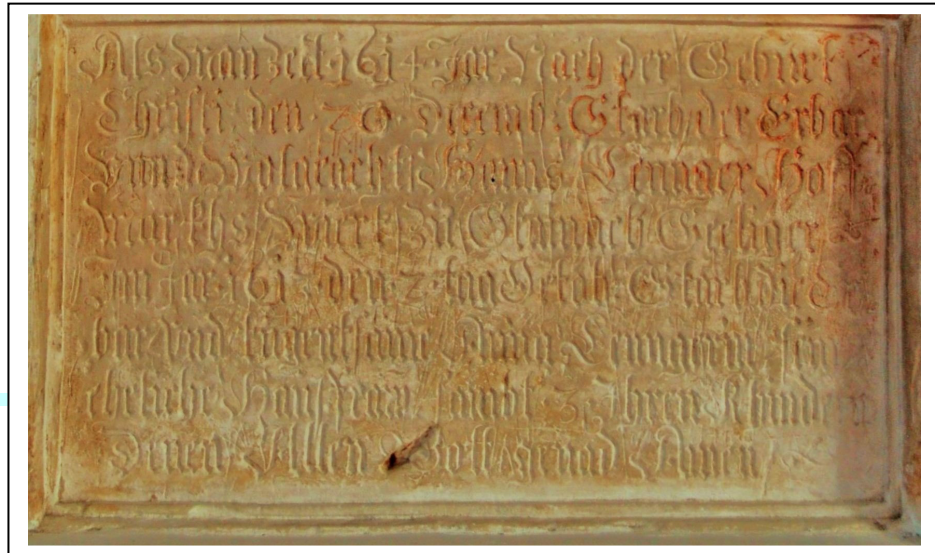 Als man zelt 1614 Jar Nach der Geburt
Christi den 20 Decemb: Starb der Erbar
Vnnd Wolgeacht Hanns Lennger Hoff
markhs zu Seeliger
Jm Jar 161 den 2 tag Starb die Er
bar vnd tugentsame Anna Lenngerin sein
eheliche Hausfraw sambt 3 Jhren Khindern
Denen Allen Gott genad Amen